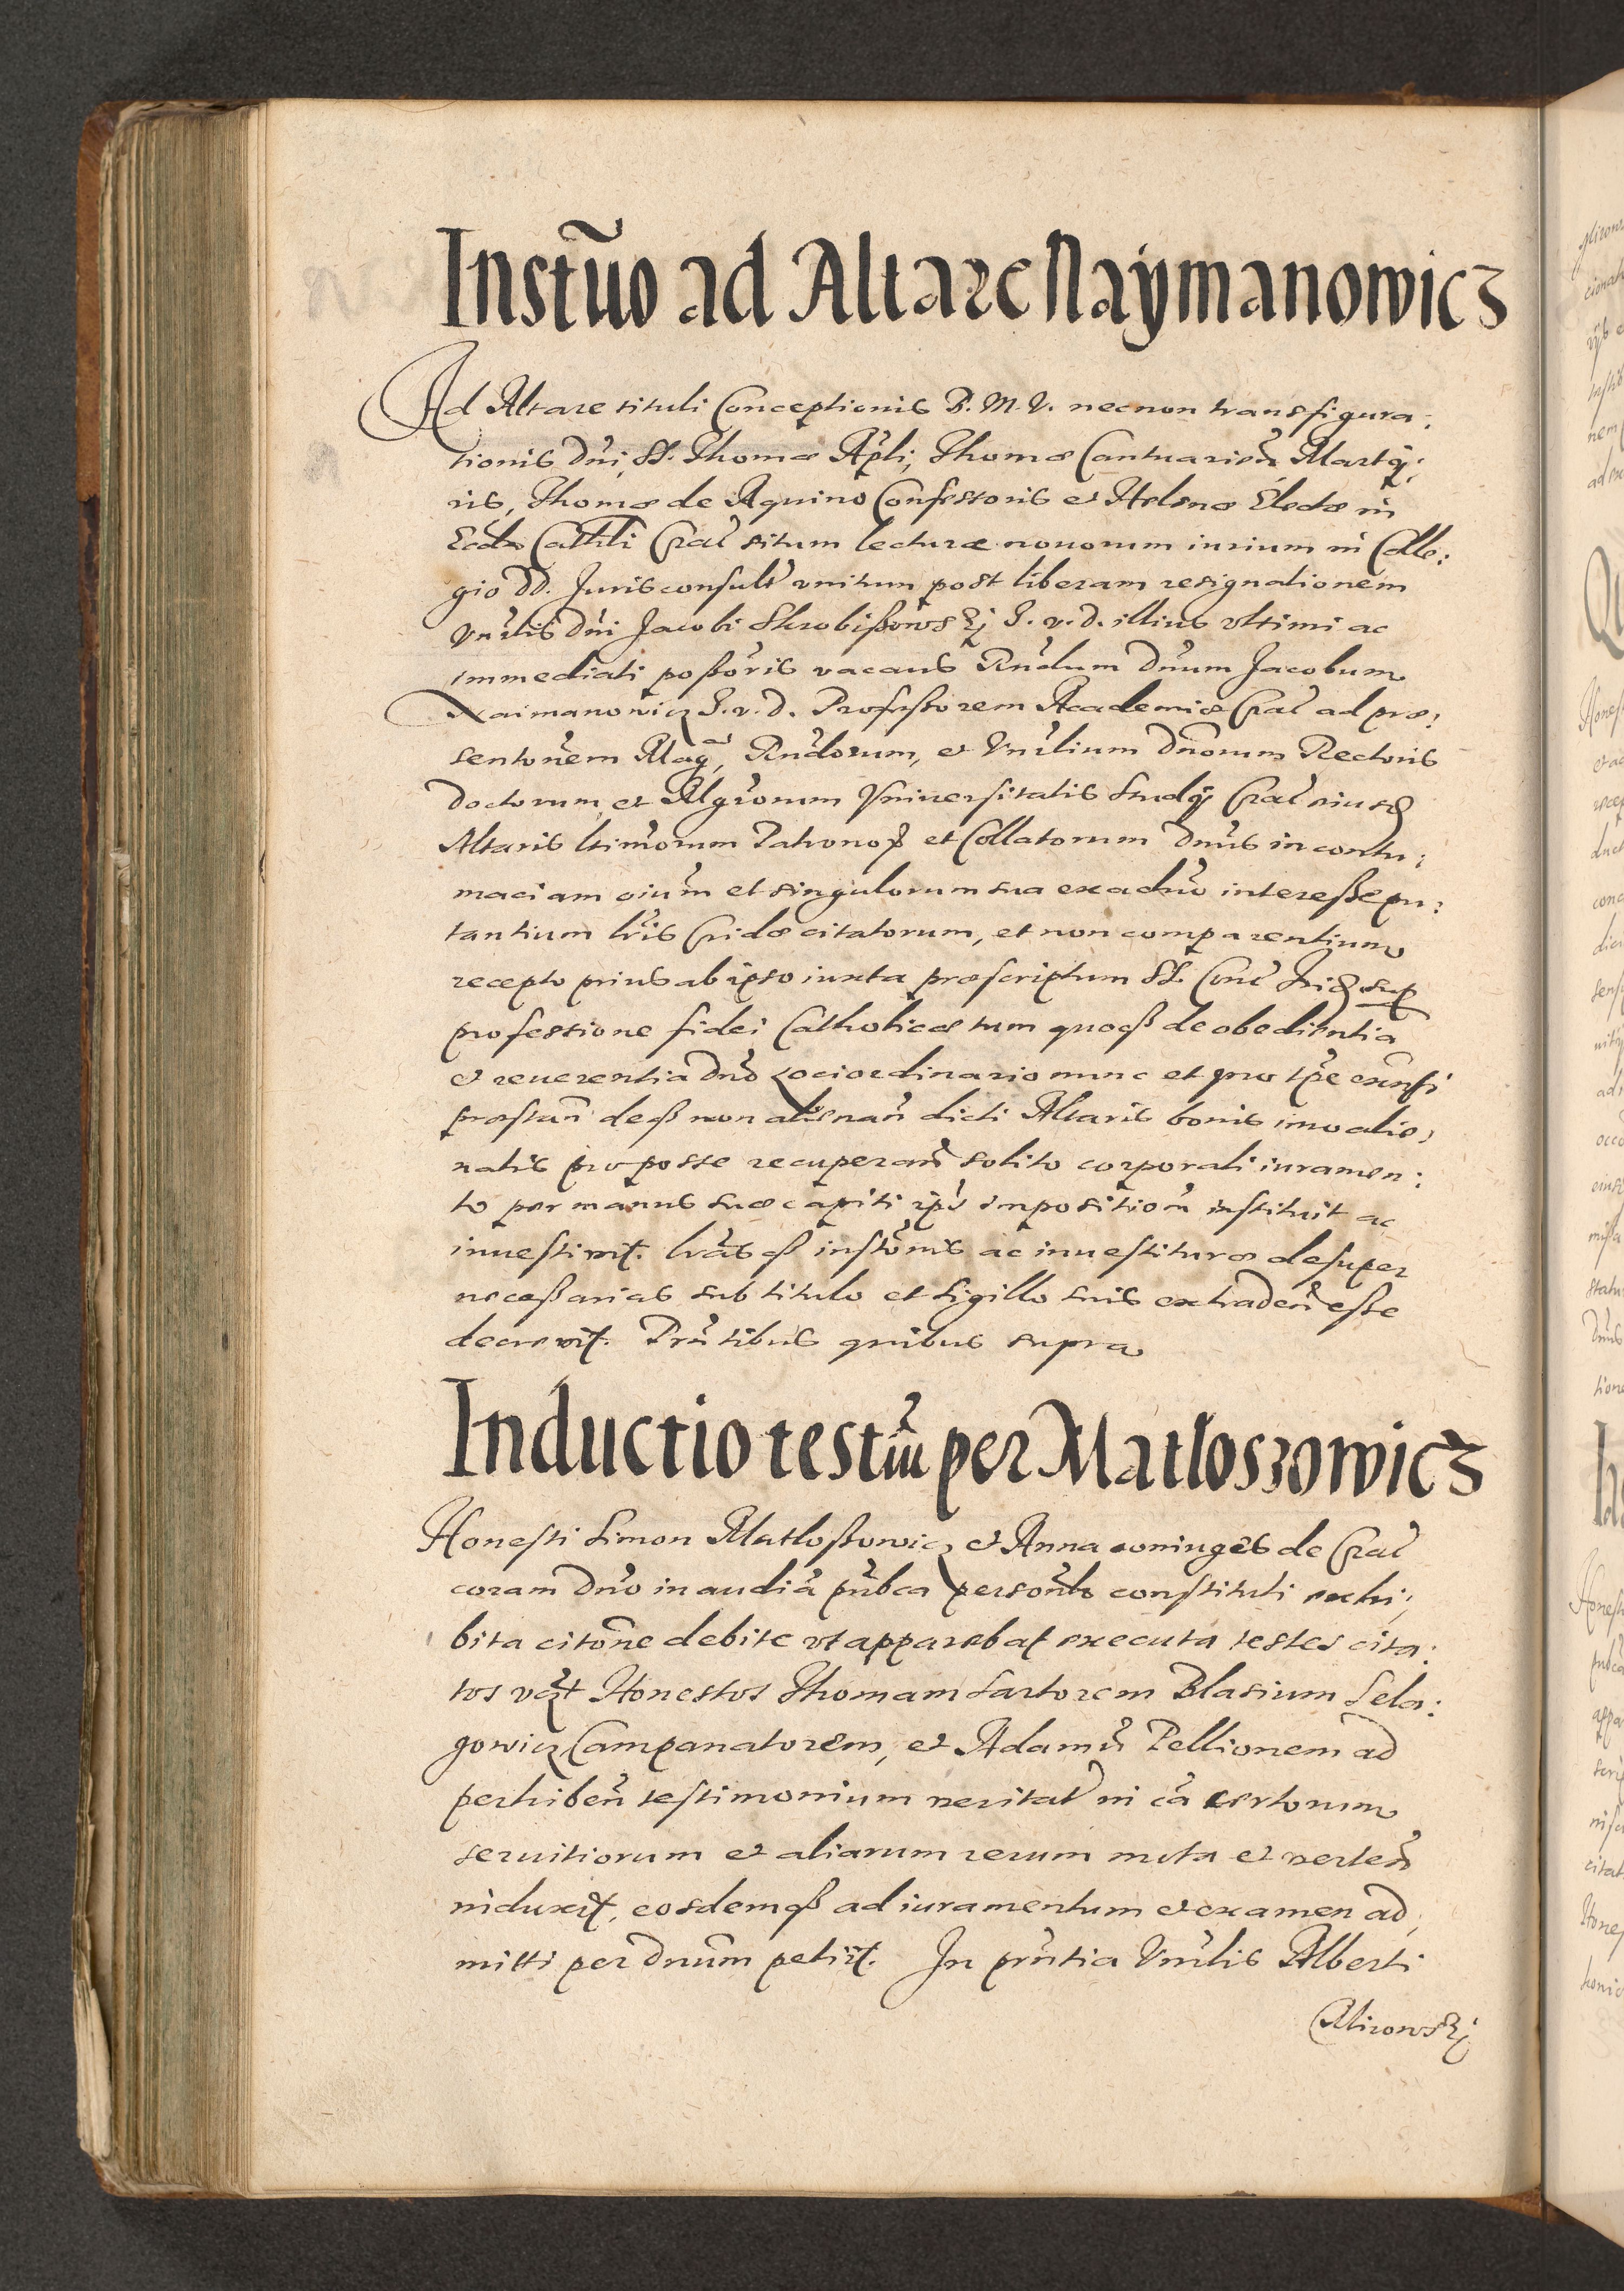 Instũo ad Altare Naÿmanowicz
Ad Altare tituli Conceptionis B. M. V. necnon transfigura:
tionis Dńi, St. Thomæ Apłi, Thomæ Cantuarień Martÿ:
ris, Thomæ de Aquino Confessoris et Helenæ Electæ in
Eccłia Cathłi Craĉ situm lecturæ nouorum iurium in Colle:
gio DD. Jurisconsult̃ vnitum post liberam resignationem
Vnrlis Dńi Jacobi Skrobißowskj J. v. d. illius vltimi ac
immediati poßoris vacans Rńdum Dńum Jacobum
Naimanowicz J. v. d. Profeßorem Academiæ Craĉ ad præ:
sentõnem Magᶜᵒʳ, Rńdorum, et Vnrlium Dńorum Rectoris
Doctorum et Mgrorum Vniuersitatis Studÿ Craĉ eiusd
Altaris ltimorum Patronoꝝ et Collatorum Dńus in contu:
maciam oium et singulorum sua exadũo intereße pu:
tantium lr̃is Cridæ citatorum, et non comparentium
recepto prius ab ipso iuxta præscriptum SS. Conĉ Trid sup
professione fidei Catholicæ tum quoqꝫ de obedientia
et reuerentia Dńo Loci ordinario nunc et pro tp̃e exńti
præstań deqꝫ non alienań dicti Altaris bonis imo alie:
natis pro posse recuperań solito corporali iuramen:
to per manus suæ capiti ip̃i impositioń instituit ac
inuestiuit. lr̃as qꝫ instõnis ac inuestituræ desuper
necessarias sub titulo et sigillo suis extradeń eße
decreuit. Prńtibus quibus supra
Inductio testiũ per Matloszowicz
Honesti Simon Matloßowicz et Anna coniuges de Craĉ
coram Dńo in audiã pũbca personłr constituti exhi:
bita citõne debite vt apparebat executa testes cita:
tos vczt Honestos Thomam Sartorem Blasium Sela:
gowicz Campanatorem, et Adamũ Pellionem ad
perhibeń testimonium veritat̃ in cã certorum
seruitiorum et aliarum rerum mota et verteń
induxit, eosdemqꝫ ad iuramentum et examen ad,
mitti per Dńum petiit. In prńtia Vnrlis Alberti
Mirowskj